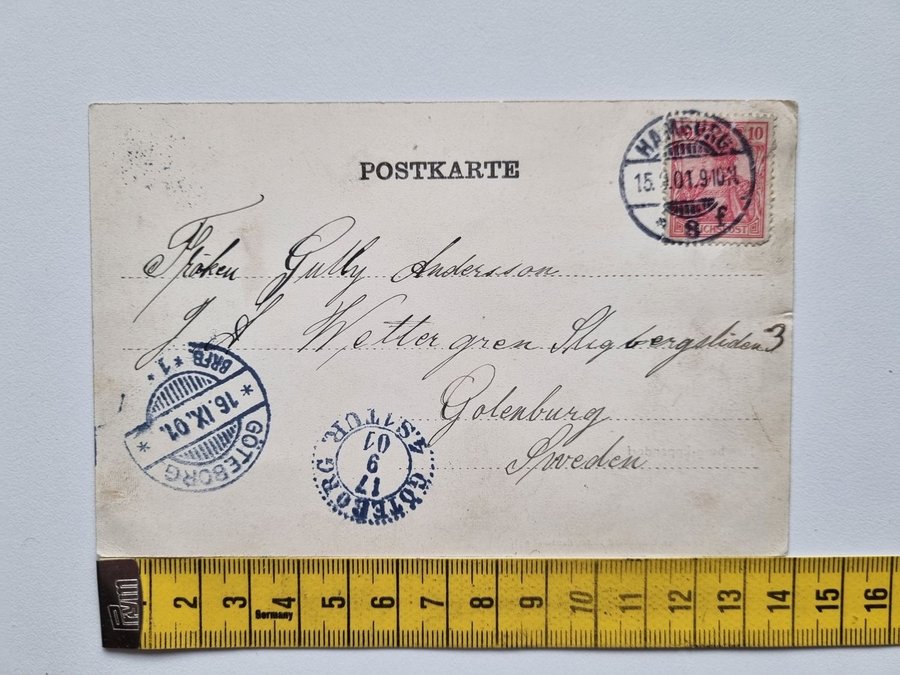 POSTKARTE
HAMBURG
15.9.01.9-10V.
* 8 f
10
REICHSPOST
Fröken Gully Andersson
J A Wettergren Stigbergsliden 3
Gotenburg
Sweden
GÖTEBORG
16.IX.01.
BRFB. *1*
GÖTEBORG
17
9
01
4.S.1TUR.
1 2 3 4 5 6 7 8 9 10 11 12 13 14 15 16
Germany